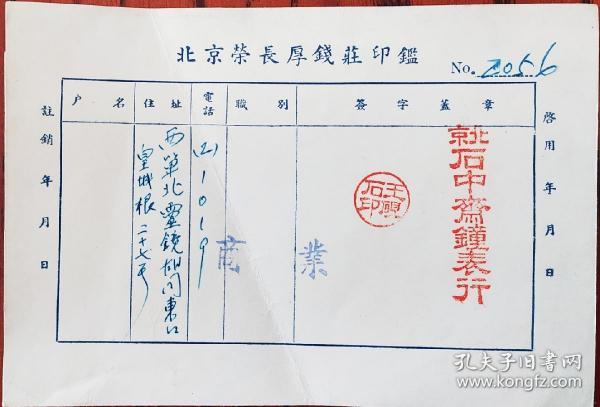 北京榮長厚錢莊印鑑
No. 2056
啓用 年 月 日
簽字蓋章
職別
電話
住址
户名
註銷 年 月 日
北京石中齋鐘表行
王硯石印
商業
(2)1019
西單北靈鏡胡同東口
皇城根二十七号
孔夫子旧书网
www.kongfz.com